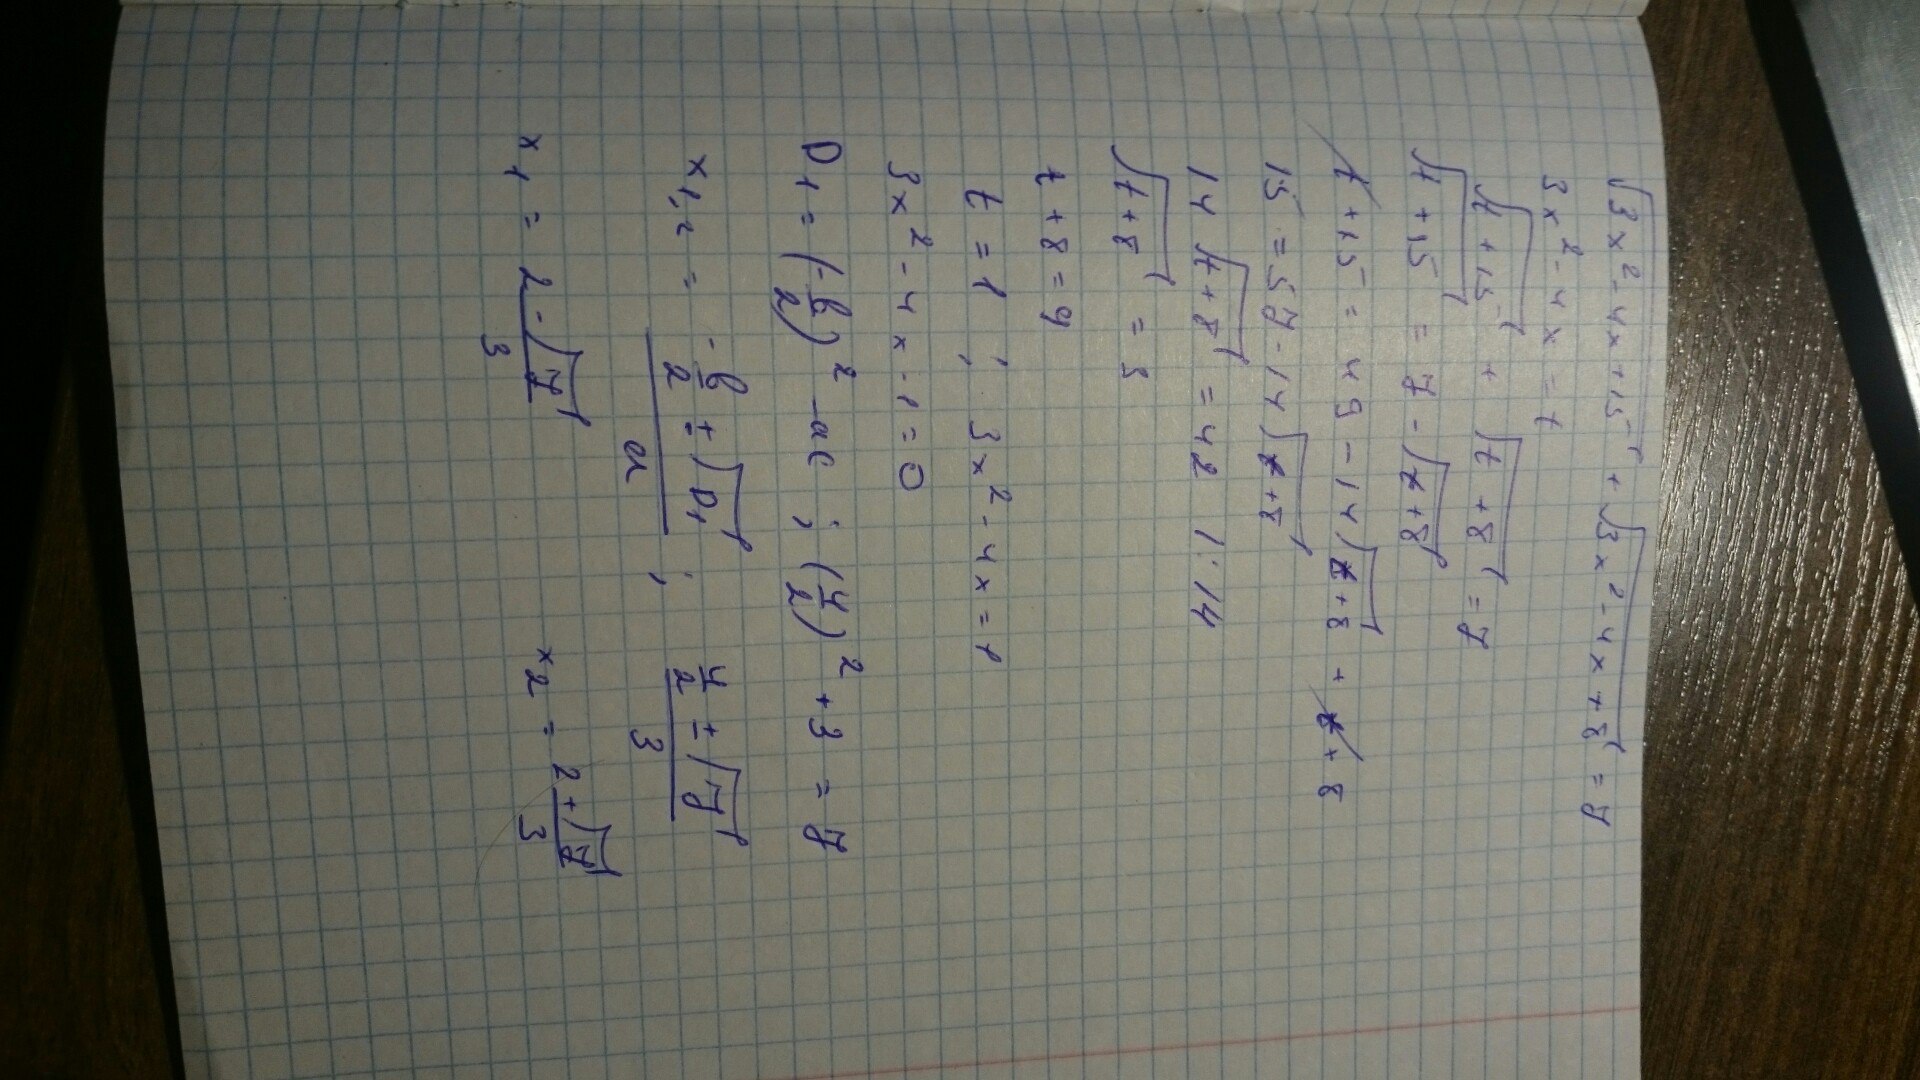 √(3x² - 4x + 15) + √(3x² - 4x + 8) = 7
3x² - 4x = t
√(t + 15) + √(t + 8) = 7
√(t + 15) = 7 - √(t + 8)
t + 15 = 49 - 14√(t + 8) + t + 8
15 = 57 - 14√(t + 8)
14√(t + 8) = 42 | : 14
√(t + 8) = 3
t + 8 = 9
t = 1 ; 3x² - 4x = 1
3x² - 4x - 1 = 0
D₁ = (-b/2)² - ac ; (4/2)² + 3 = 7
x₁,₂ = (-b/2 ± √D₁)/a ; (4/2 ± √7)/3
x₁ = (2 - √7)/3 x₂ = (2 + √7)/3